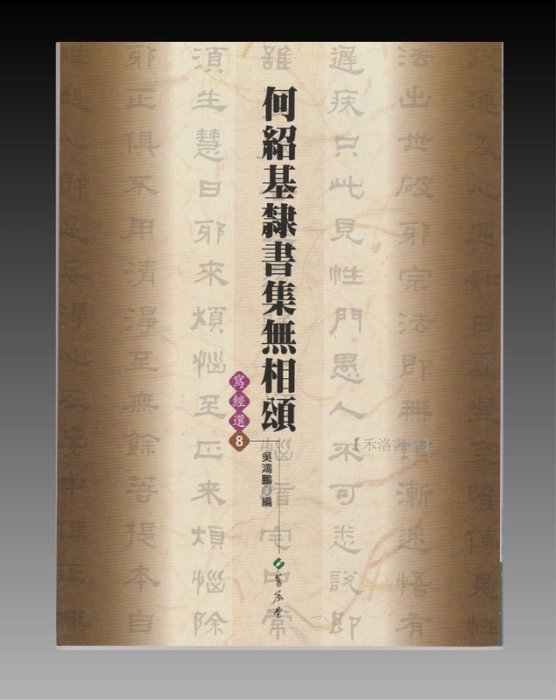 何紹基隸書集無相頌
寫經選8
吳鴻鵬 編
蕙風堂
法出世破邪宗法即無漸迷悟有
遲疾只此見性門愚人不可悉說即
雖
惱暗宅中常
須生慧日邪來煩惱至正來煩惱除
邪正俱不用清淨至無餘菩提本自